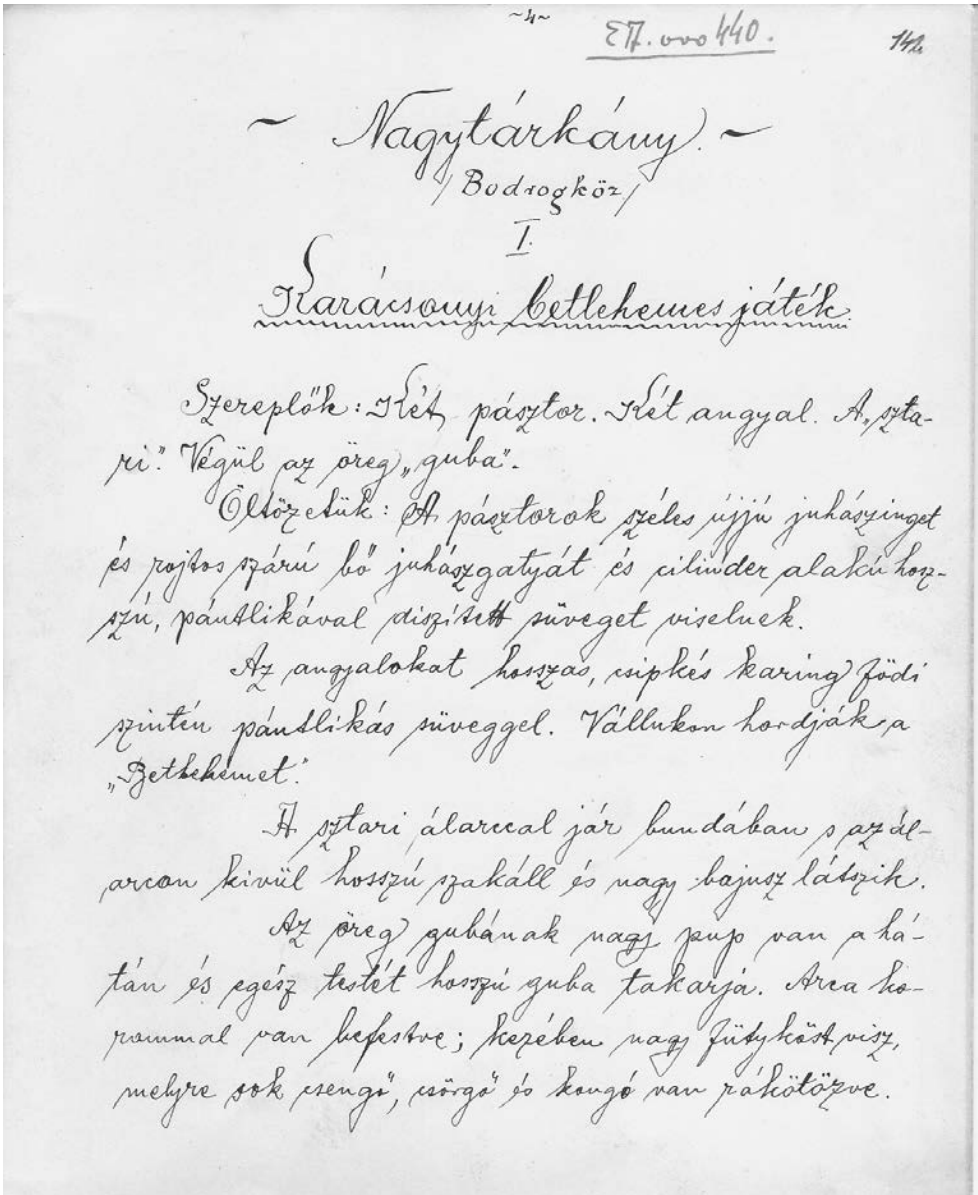 ~4~
EA.000440.
142
~ Nagytárkány. ~
/Bodrogköz/
I.
Karácsonyi betlehemes játék.
Szereplők: Két pásztor. Két angyal. A „szta-
ri". Végül az öreg „guba".
Öltözetük: A pásztorok széles újjú juhászinget
és rojtos szárú bő juhászgatyát és cilinder alakú hosz-
szú, pántlikával diszített süveget viselnek.
Az angyalokat hosszas, csipkés karing födi
szintén pántlikás süveggel. Vállukon hordják a
„Betlehemet".
A sztari álarccal jár bundában s az ál-
arcon kivül hosszú szakáll és nagy bajusz látszik.
Az öreg gubának nagy pup van a há-
tán és egész testét hosszú guba takarja. Arca ko-
rommal van befestve; kezében nagy fütyköst visz,
melyre sok csengő, csörgő és kongó van rákötözve.